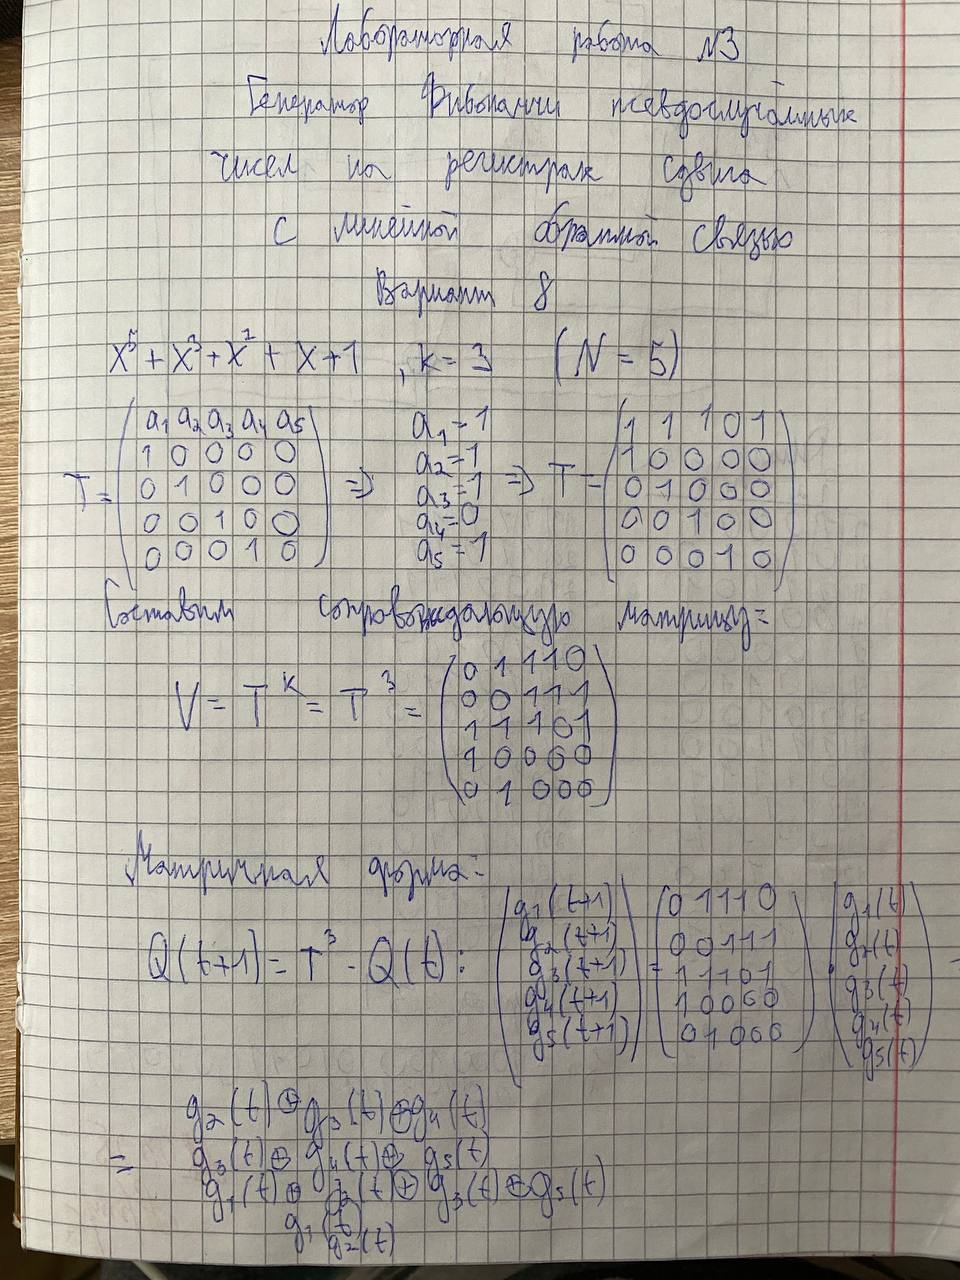 Лабораторная работа №3
Генератор Фибоначчи псевдослучайных
чисел на регистрах сдвига
с линейной обратной связью
Вариант 8
x⁵ + x³ + x² + x + 1 , k = 3 (N = 5)
a₁ a₂ a₃ a₄ a₅
1 0 0 0 0
T = 0 1 0 0 0 =>
0 0 1 0 0
0 0 0 1 0
a₁ = 1
a₂ = 1
a₃ = 1
a₄ = 0
a₅ = 1
1 1 1 0 1
1 0 0 0 0
=> T = 0 1 0 0 0
0 0 1 0 0
0 0 0 1 0
Составим сопровождающую матрицу =
V = Tᴷ = T³ =
0 1 1 1 0
0 0 1 1 1
1 1 1 0 1
1 0 0 0 0
0 1 0 0 0
Матричная форма:
Q(t+1) = T³ · Q(t) :
g₁(t+1)
g₂(t+1)
g₃(t+1)
g₄(t+1)
g₅(t+1)
=
0 1 1 1 0
0 0 1 1 1
1 1 1 0 1
1 0 0 0 0
0 1 0 0 0
·
g₁(t)
g₂(t)
g₃(t)
g₄(t)
g₅(t)
=
g₂(t) ⊕ g₃(t) ⊕ g₄(t)
= g₃(t) ⊕ g₄(t) ⊕ g₅(t)
g₁(t) ⊕ g₂(t) ⊕ g₃(t) ⊕ g₅(t)
g₁(t)
g₂(t)